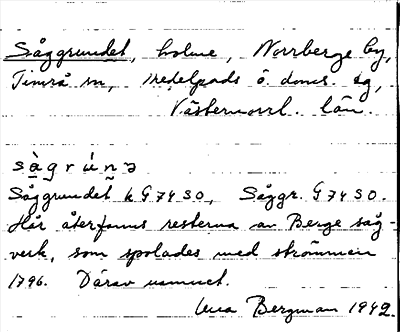 Såggrundet, holme, Norrberge by,
Timrå sn, Medelpads ö. doms. sg,
Västernorrl. län.
sàgrúṇə
Såggrundet k G 74 SO, Såggr. G 74 SO.
Här återfanns resterna av Berge såg-
verk, som spolades med strömmen
1796. Därav namnet.
Bergman 1942.